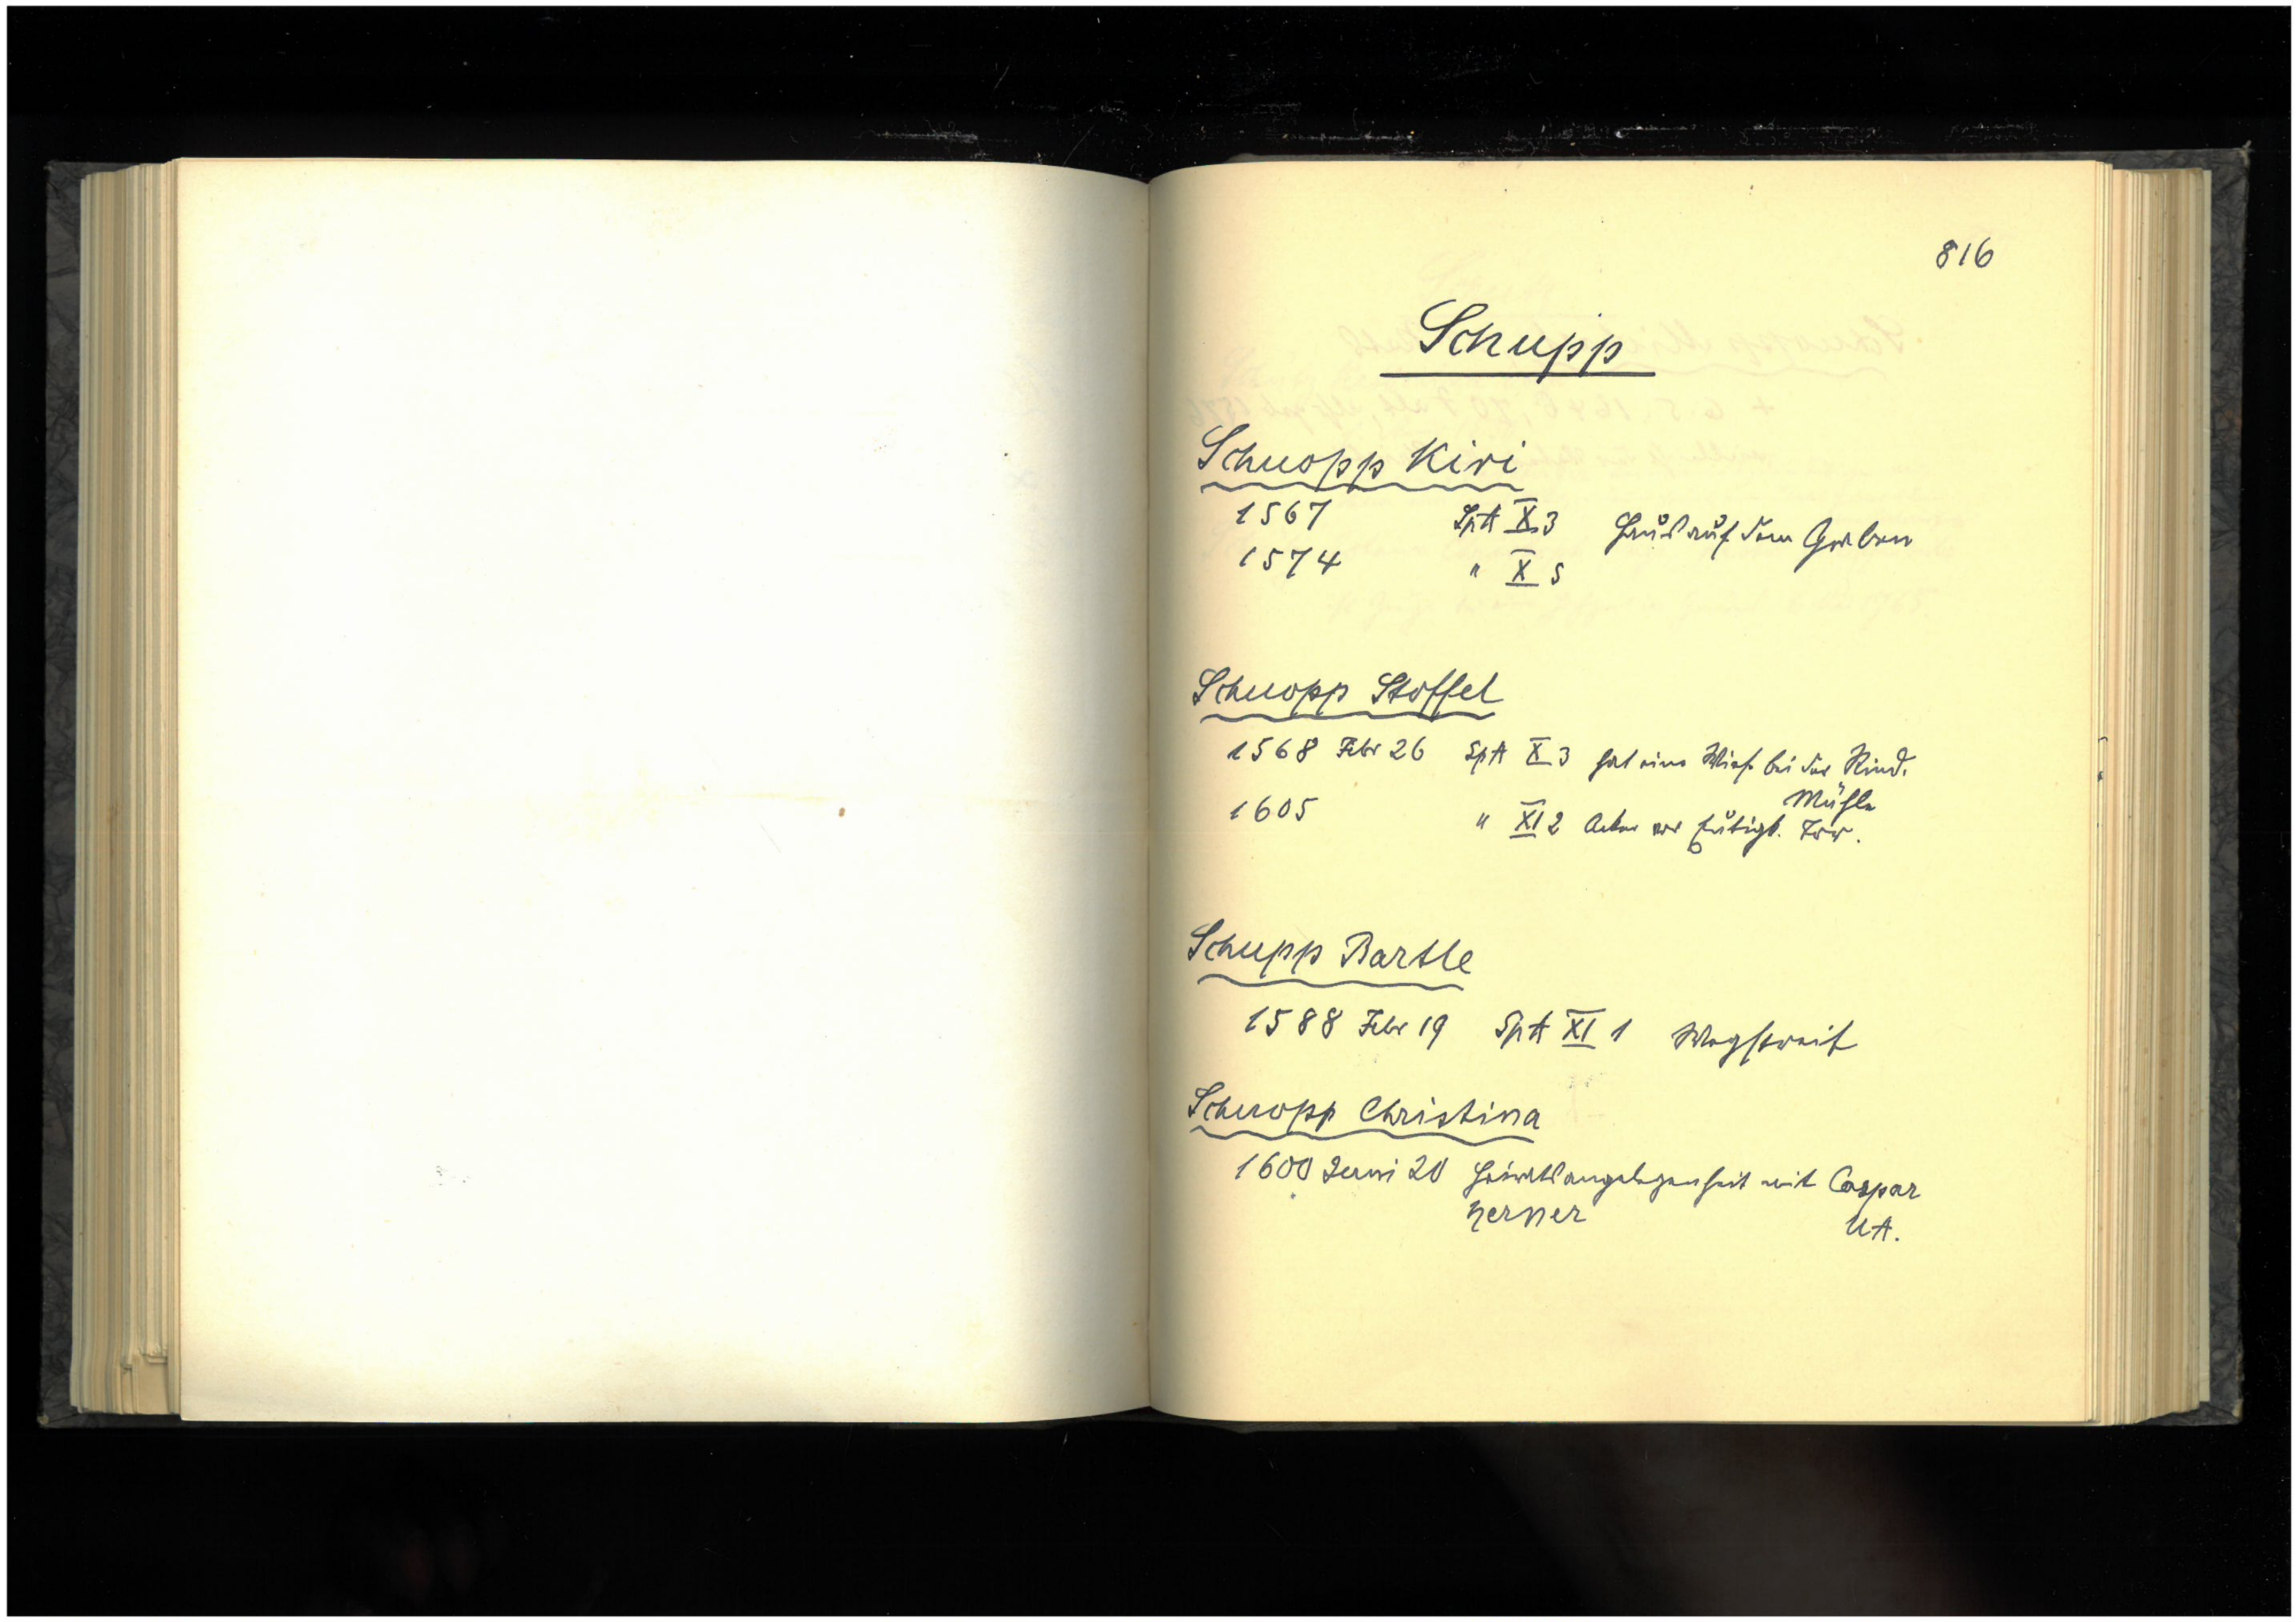 816
Schupp
Schuopp Kiri
1567 SpA X 3 Haus auf dem Graben
1574 " X 5
Schuopp Stoffel
1568 Febr 26 SpA X 3 hat eine Wiese bei der Rind.
Mühle
1605 " XI 2 Acker vor Tor.
Schupp Bartle
1588 Febr 19 SpA XI 1 Wegstreit
Schuopp Christina
1600 Juni 20 Heiratsangelegenheit mit Caspar
Nerner UA.